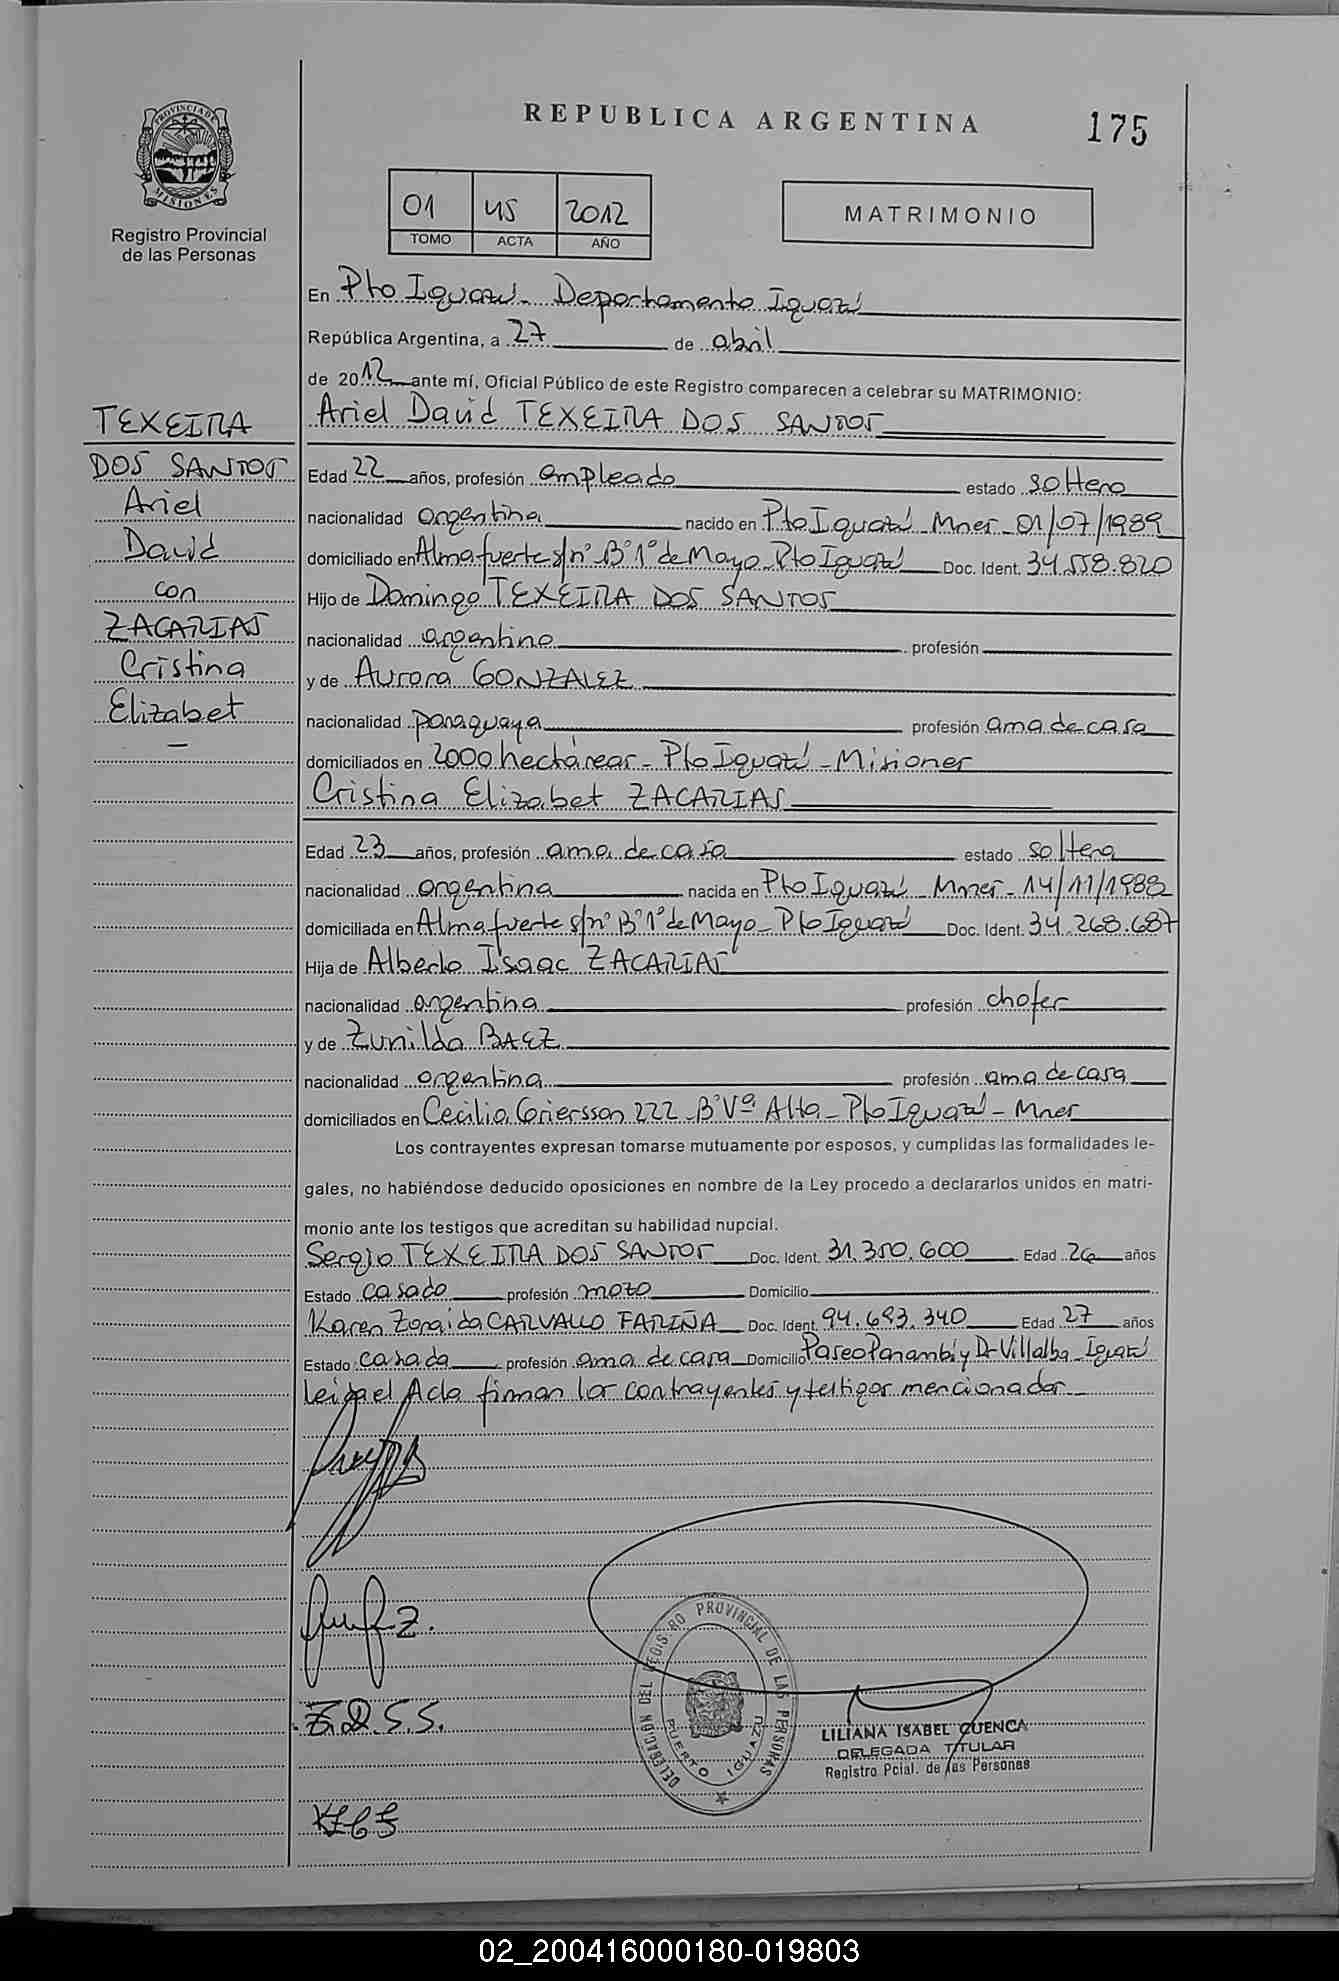 REPUBLICA ARGENTINA
175
PROVINCIA DE MISIONES
Registro Provincial
de las Personas
01 45 2012
TOMO ACTA AÑO
MATRIMONIO
En Pto Iguazú - Departamento Iguazú
República Argentina, a 27 de abril
de 2012 ante mí, Oficial Público de este Registro comparecen a celebrar su MATRIMONIO:
Ariel David TEXEIRA DOS SANTOS
TEXEIRA
DOS SANTOS
Ariel
David
con
ZACARIAS
Cristina
Elizabet
Edad 22 años, profesión empleado estado soltero
nacionalidad argentina nacido en Pto Iguazú - Mnes - 01/07/1989
domiciliado en Almafuerte s/nº Bº 1º de Mayo - Pto Iguazú Doc. Ident. 34.558.820
Hijo de Domingo TEXEIRA DOS SANTOS
nacionalidad argentino profesión
y de Aurora GONZALEZ
nacionalidad paraguaya profesión ama de casa
domiciliados en 2000 hectáreas - Pto Iguazú - Misiones
Cristina Elizabet ZACARIAS
Edad 23 años, profesión ama de casa estado soltera
nacionalidad argentina nacida en Pto Iguazú - Mnes - 14/11/1988
domiciliada en Almafuerte s/nº Bº 1º de Mayo - Pto Iguazú Doc. Ident. 34.268.687
Hija de Alberto Isaac ZACARIAS
nacionalidad argentina profesión chofer
y de Zunilda BAEZ
nacionalidad argentina profesión ama de casa
domiciliados en Cecilia Griersson 222 - Bº Vª Alta - Pto Iguazú - Mnes
Los contrayentes expresan tomarse mutuamente por esposos, y cumplidas las formalidades le-
gales, no habiéndose deducido oposiciones en nombre de la Ley procedo a declararlos unidos en matri-
monio ante los testigos que acreditan su habilidad nupcial.
Sergio TEXEIRA DOS SANTOS Doc. Ident. 31.350.600 Edad 26 años
Estado casado profesión mozo Domicilio
Karen Zoraida CARVALLO FARIÑA Doc. Ident. 94.693.340 Edad 27 años
Estado casada profesión ama de casa Domicilio Paseo Panambí y D. Villalba - Iguazú
Leída el Acta firman los contrayentes y testigos mencionados
DELEGACION DEL REGISTRO PROVINCIAL DE LAS PERSONAS
PUERTO IGUAZU
LILIANA ISABEL CUENCA
DELEGADA TITULAR
Registro Pcial. de las Personas
02_200416000180-019803